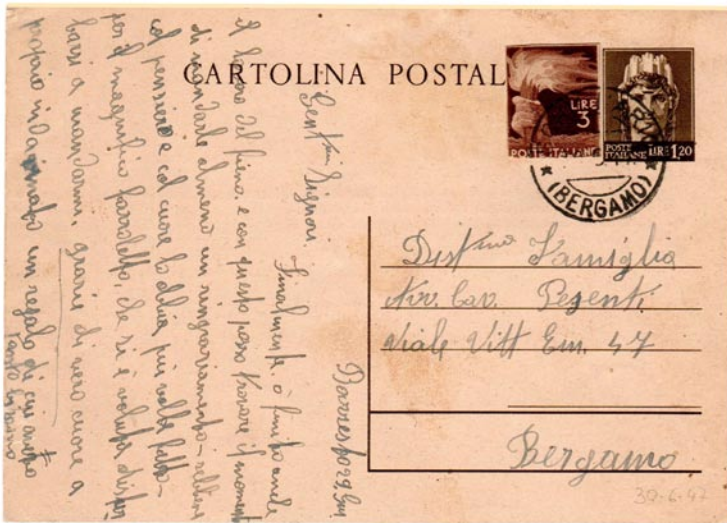 CARTOLINA POSTAL
LIRE
3
POSTE ITALIANE
POSTE
ITALIANE
LIRE 1,20
(BERGAMO)
Dist.ma Famiglia
Avv. Cav. Pesenti
Viale Vitt Em. 47
Bergamo
30-6-47
Gent.mi Signori.
Finalmente ò finito anche
il lavoro del fieno, e con questo posso trovare il momento
di mandarle almeno un ringraziamento - sebbene
col pensiero e col cuore lo abbia più volte fatto -
per il magnifico fazzoletto, che si è voluta distur
barsi a mandarmi, grazie di vero cuore
proprio indovinato un regalo di cui avevo
tanto bisogno